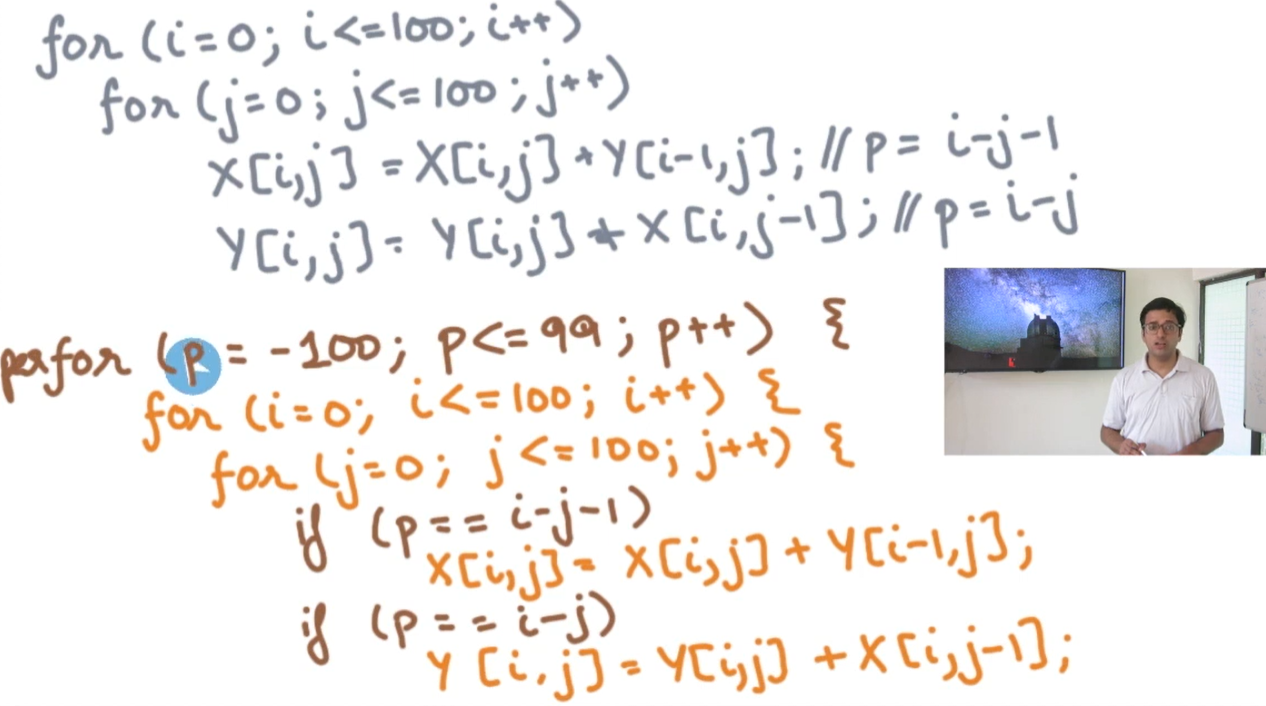 for (i=0; i<=100; i++)
for (j=0; j<=100; j++)
X[i,j] = X[i,j] + Y[i-1,j]; // p = i-j-1
Y[i,j] = Y[i,j] + X[i,j-1]; // p = i-j
parfor (p = -100; p<=99; p++) {
for (i=0; i<=100; i++) {
for (j=0; j<=100; j++) {
if (p == i-j-1)
X[i,j] = X[i,j] + Y[i-1,j];
if (p == i-j)
Y[i,j] = Y[i,j] + X[i,j-1];